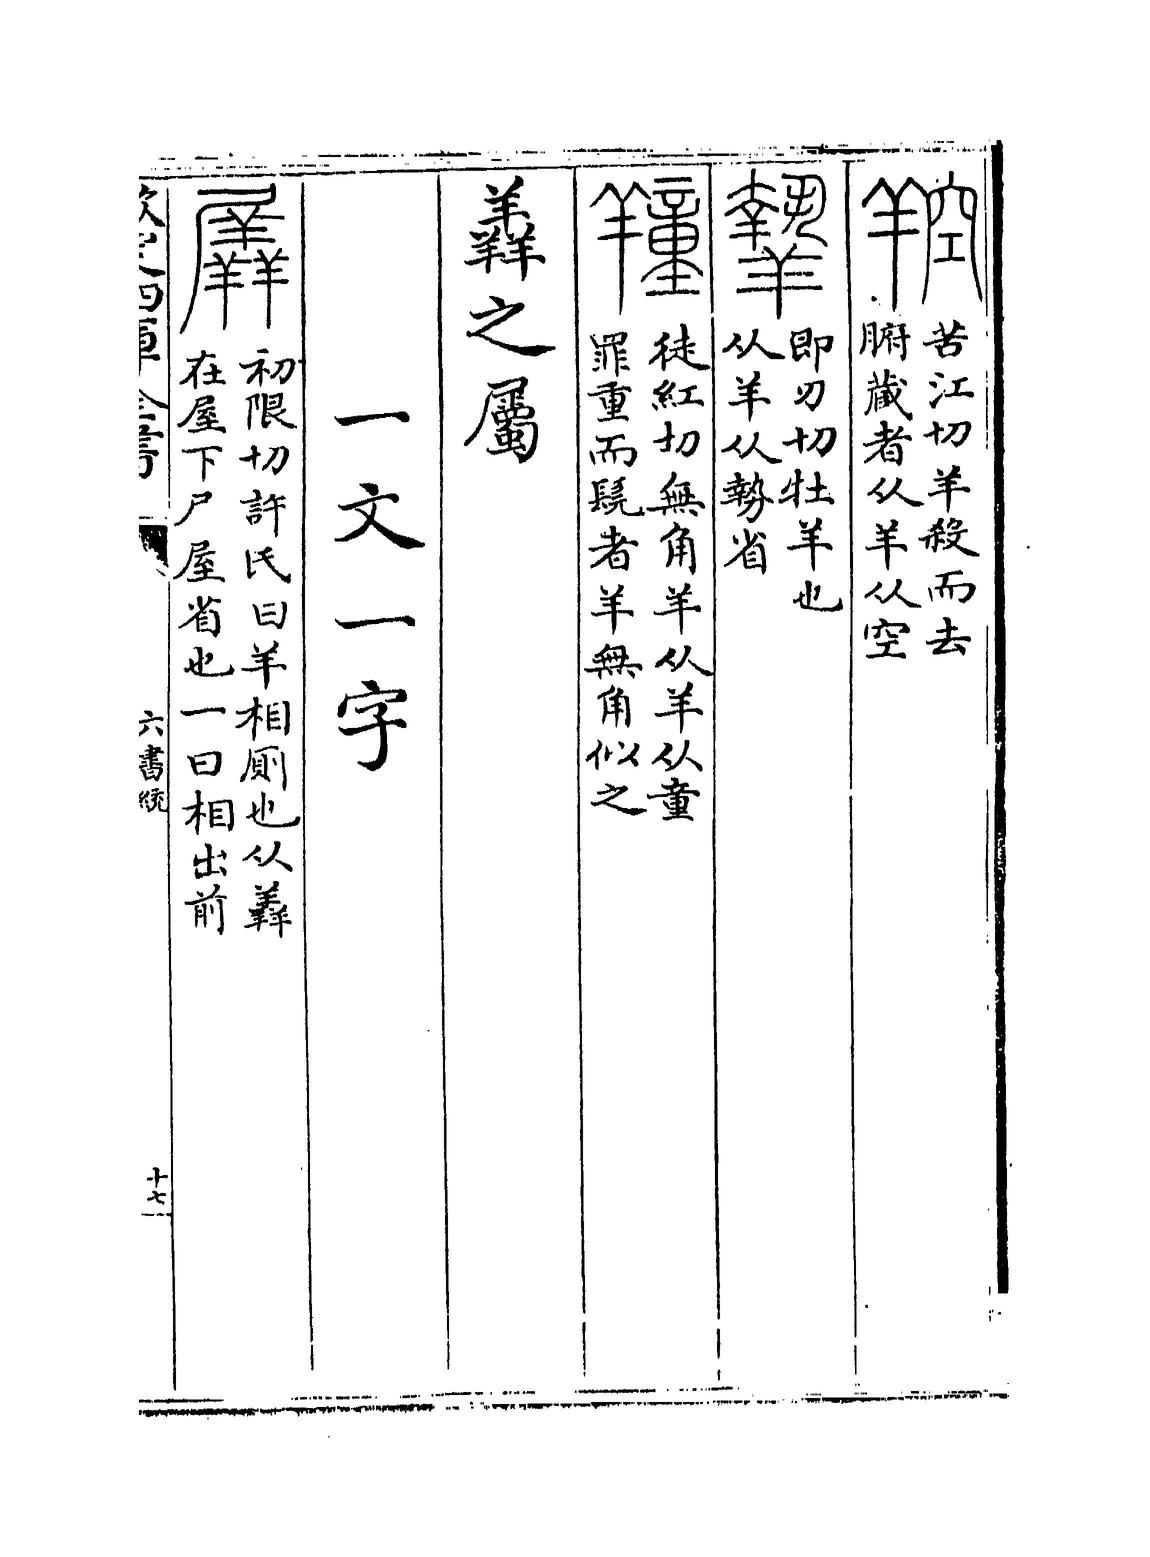 羫 苦江切羊殺而去
腑藏者从羊从空
𦎷 即刃切牡羊也
从羊从勢省
羵 徒紅切無角羊从羊从童
罪重而髡者羊無角似之
羴之屬
一文一字
羼 初限切許氏曰羊相厠也从羴
在屋下尸屋省也一曰相出前
欽定四庫全書
六書統
十七